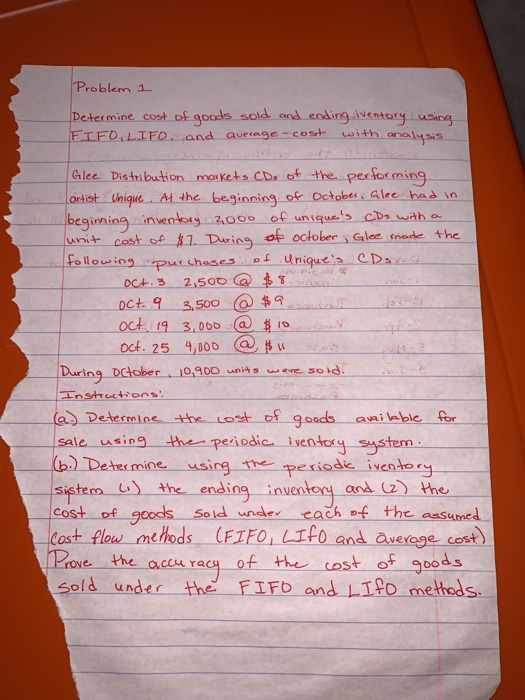 Problem 1
Determine cost of goods sold and ending iventory using
FIFO, LIFO, and average-cost with analysis
Glee Distribution markets CDs of the performing
artist Unique. At the beginning of October, Glee had in
beginning inventory 2,000 of unique's CDs with a
unit cost of $7. During of october, Glee made the
following purchases of Unique's CDs
Oct. 3 2,500 @ $8
Oct. 9 3,500 @ $9
Oct. 19 3,000 @ $10
Oct. 25 4,000 @ $11
During October, 10,900 units were sold.
Instructions:
(a.) Determine the cost of goods available for
sale using the periodic iventory system.
(b.) Determine using the periodic iventory
sistem (1) the ending inventory and (2) the
cost of goods sold under each of the assumed
cost flow methods (FIFO, LIFO and average cost)
Prove the accuracy of the cost of goods
sold under the FIFO and LIFO methods.